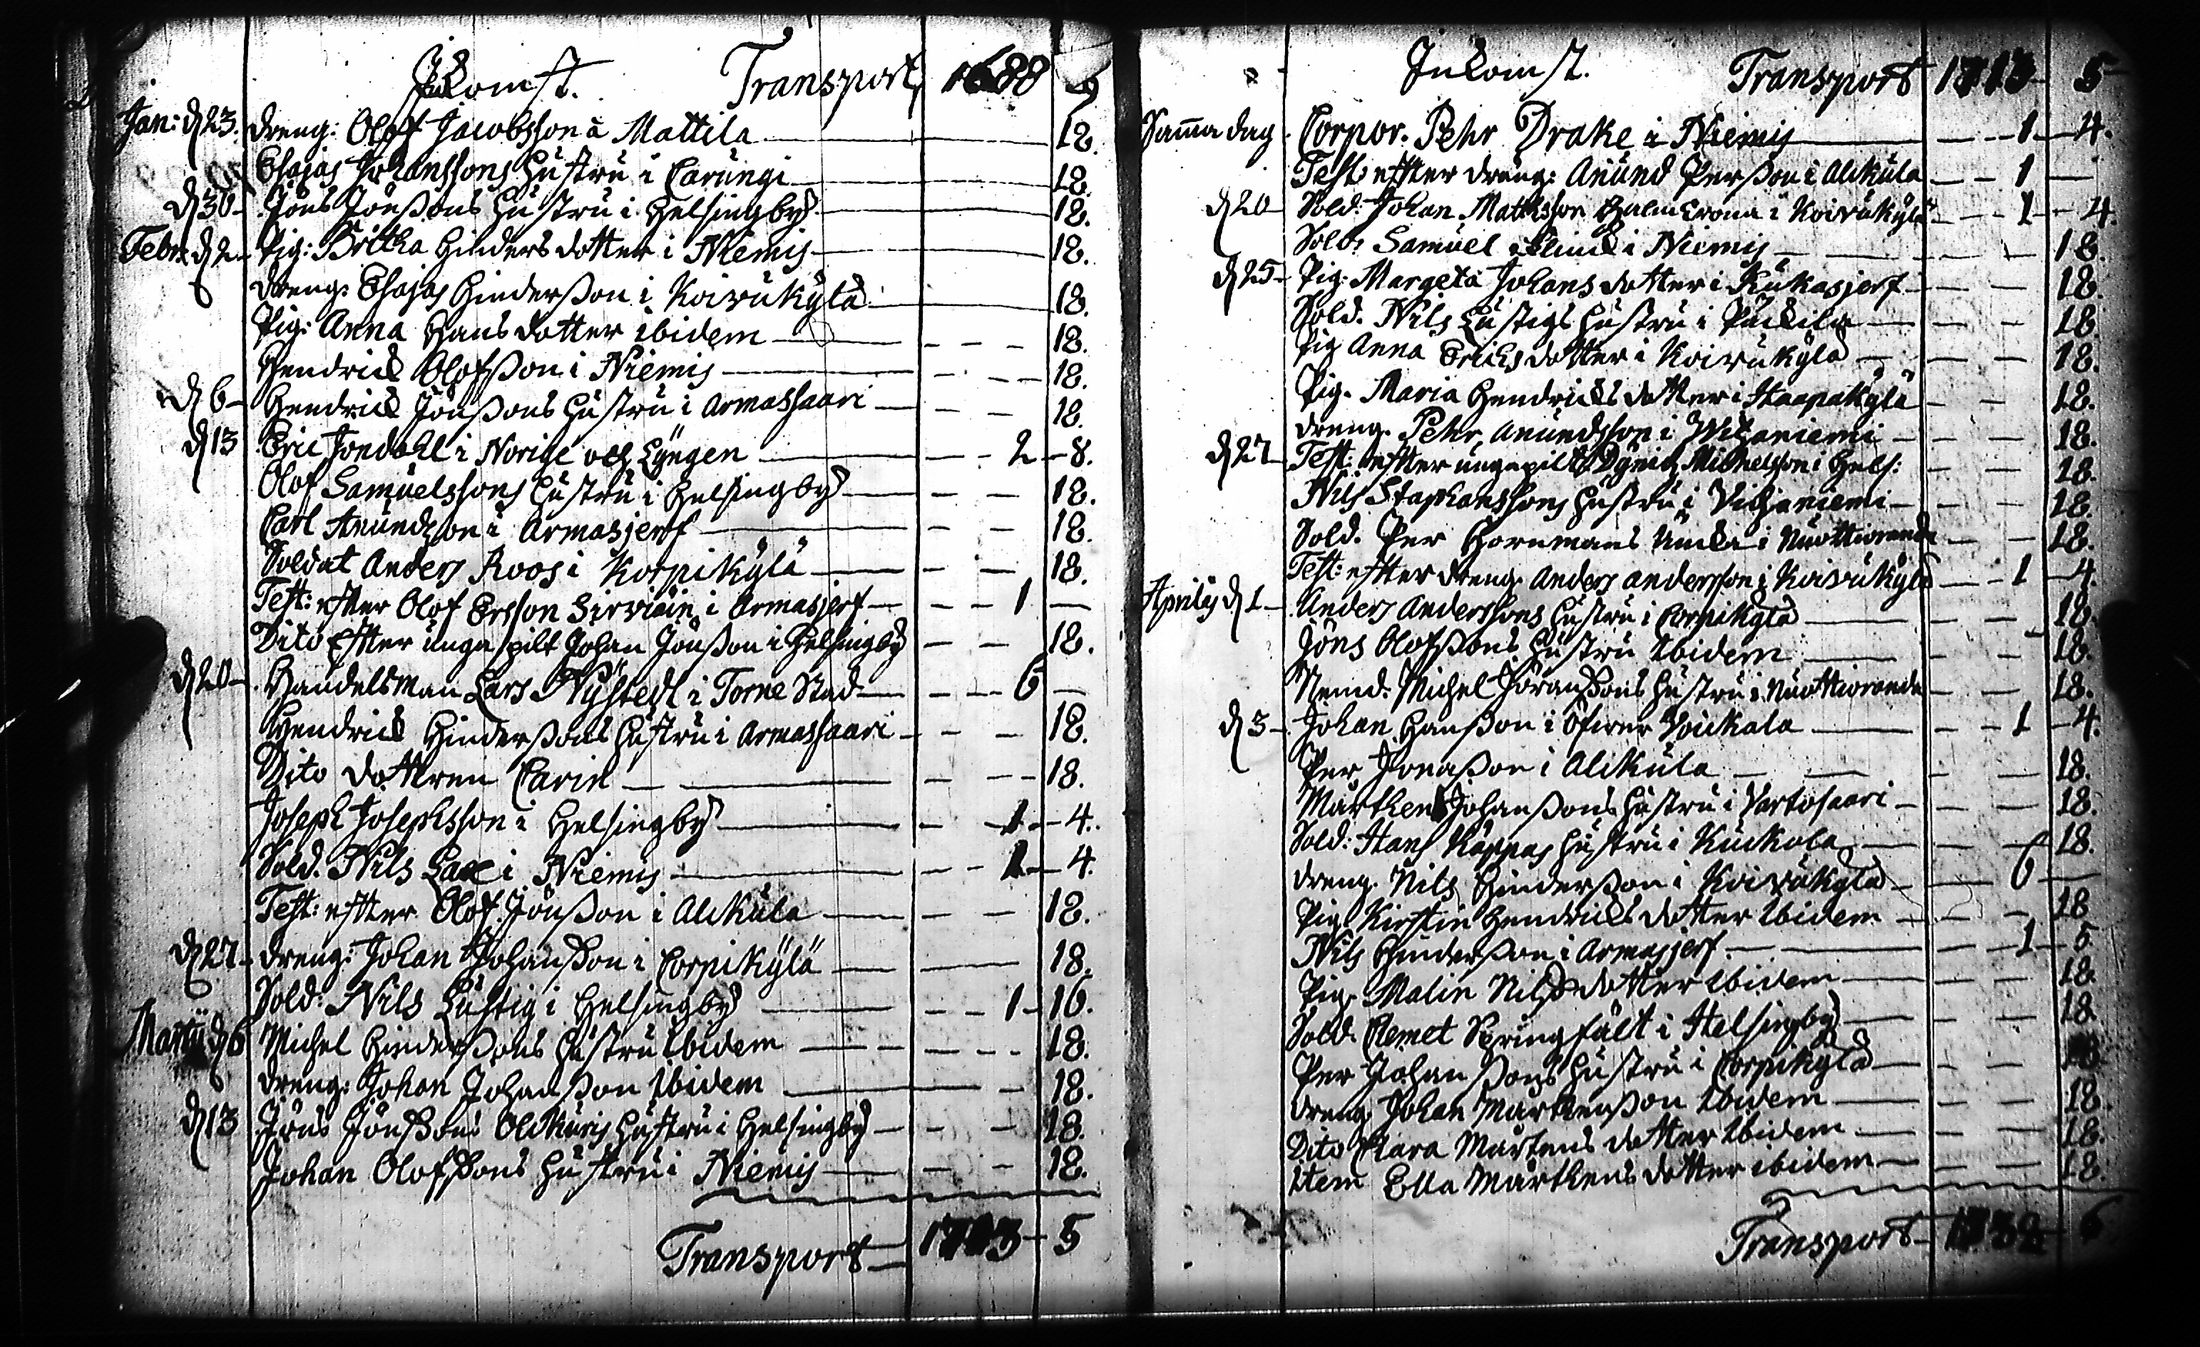 Inkomst. Transport 1688 9
Jan: d 23. dreng: Olof Jacobsson a Mattila 18.
Esajas Johanssons hustru i Carungi 18.
d 30 Jöns Jönßons hustru i Helsingby 18.
Febr: d 2 Pig: Britha Hinders dotter i Niemis 18.
dreng: Esajas Hinderßon i Koivukylä 18.
Pig: Anna Hans dotter ibidem 18.
Hendrick Olofßon i Niemis 18.
d 6 Hendrick Jönßons hustru i Armassaari 18.
d 13 Eric Jondahl i Norige och Lyngen 2 8.
Olof Samuelssons hustru i Helsingby 18.
Carl Anundßon i Armasjerf 18.
Soldat Anders Roos i Korpikylä 18.
Test: efter Olof Ersson Sirviain i Armasjerf 1
Dito efter unga pilt Johan Jönßon i Helsingby 18.
d 20 Handelsman Lars Nystedt i Torne Stad 6
Hendrick Hinderßons hustru i Armassaari 18.
Dito dottren Carin 18.
Joseph Josephsson i Helsingby 1 4.
Sold. Nils Lax i Niemis 1 4.
Test: efter Olof Jönßon i Alikula 18.
d 27 dreng: Johan Johanßon i Corpikylä 18.
Sold: Nils Lustig i Helsingby 1 16.
Martij d 6 Michel Hinderßons hustru ibidem 18.
dreng: Johan Johanßon ibidem 18.
d 13 Jöns Jönßons hustru i Helsingby 18.
Johan Olofßons hustru i Niemis 18.
Transport 1713 5
Inkomst. Transport 1713 5
Samma dag Corpor. Pehr Drake i Niemis 1 4.
Test: efter dreng: Anund Perßon i Alikula 1
d 20 Sold: Johan Mattsson i Koivukylä 1 4.
Sold: Samuel i Niemis 18.
d 25 Pig: Margeta Johans dotter i Kukasjerf 18.
Sold. Nils Lustigs hustru i Puckila 18.
Pig Anna Erichs dotter i Koivukylä 18.
Pig. Maria Hendricks dotter i Haapakylä 18.
dreng. Pehr Anundsson i Vitzaniemi 18.
d 27 Test: efter unga pilt Michelsson i Hels: 18.
Nils Staphanssons hustru i Vitzaniemi 18.
Sold. Per Hornmans i Nuottioranda 18.
Test: efter dreng. Anders Andersson i Koivukylä 1 4.
Aprilis d 1 Anders Anderssons hustru i Corpikylä 18.
Jöns Olofßons hustru ibidem 18.
Nemd. Michel Jöranßons hustru i Nuottioranda 18.
d 3 Johan Hanßon i Öfwer Woickala 1 4.
Per Jonaßon i Alikula 18.
Mårthen Johanßons hustru i Vartosaari 18.
Sold: Hans Kappas hustru i Kuckola 18.
dreng. Nils Hinderßon i Koivukylä 6
Pig. Kirstin Hendricks dotter ibidem 18
Nils Hinderßon i Armasjerf 1 5
Pig. Malin Nils dotter ibidem 18.
Sold. Clemet Springfält i Helsingby 18
Per Johanßons hustru i Corpikylä
dreng Johan Mårthenßon ibidem 18.
Dito Clara Mårtens dotter ibidem 18.
Item Ella Mårthens dotter ibidem 18.
Transport 6